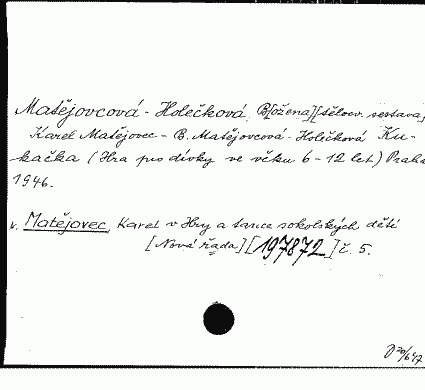 Matějovcová - Holečková B[ožena] [tělocv. sestava]
Karel Matějovec - B. Matějovcová - Holečková Ku-
kačka (Hra pro dívky ve věku 6 - 12 let) Praha
1946.
v. Matějovec, Karel v Hry a tance sokolských dětí
[Nová řada] [197872] č. 5.